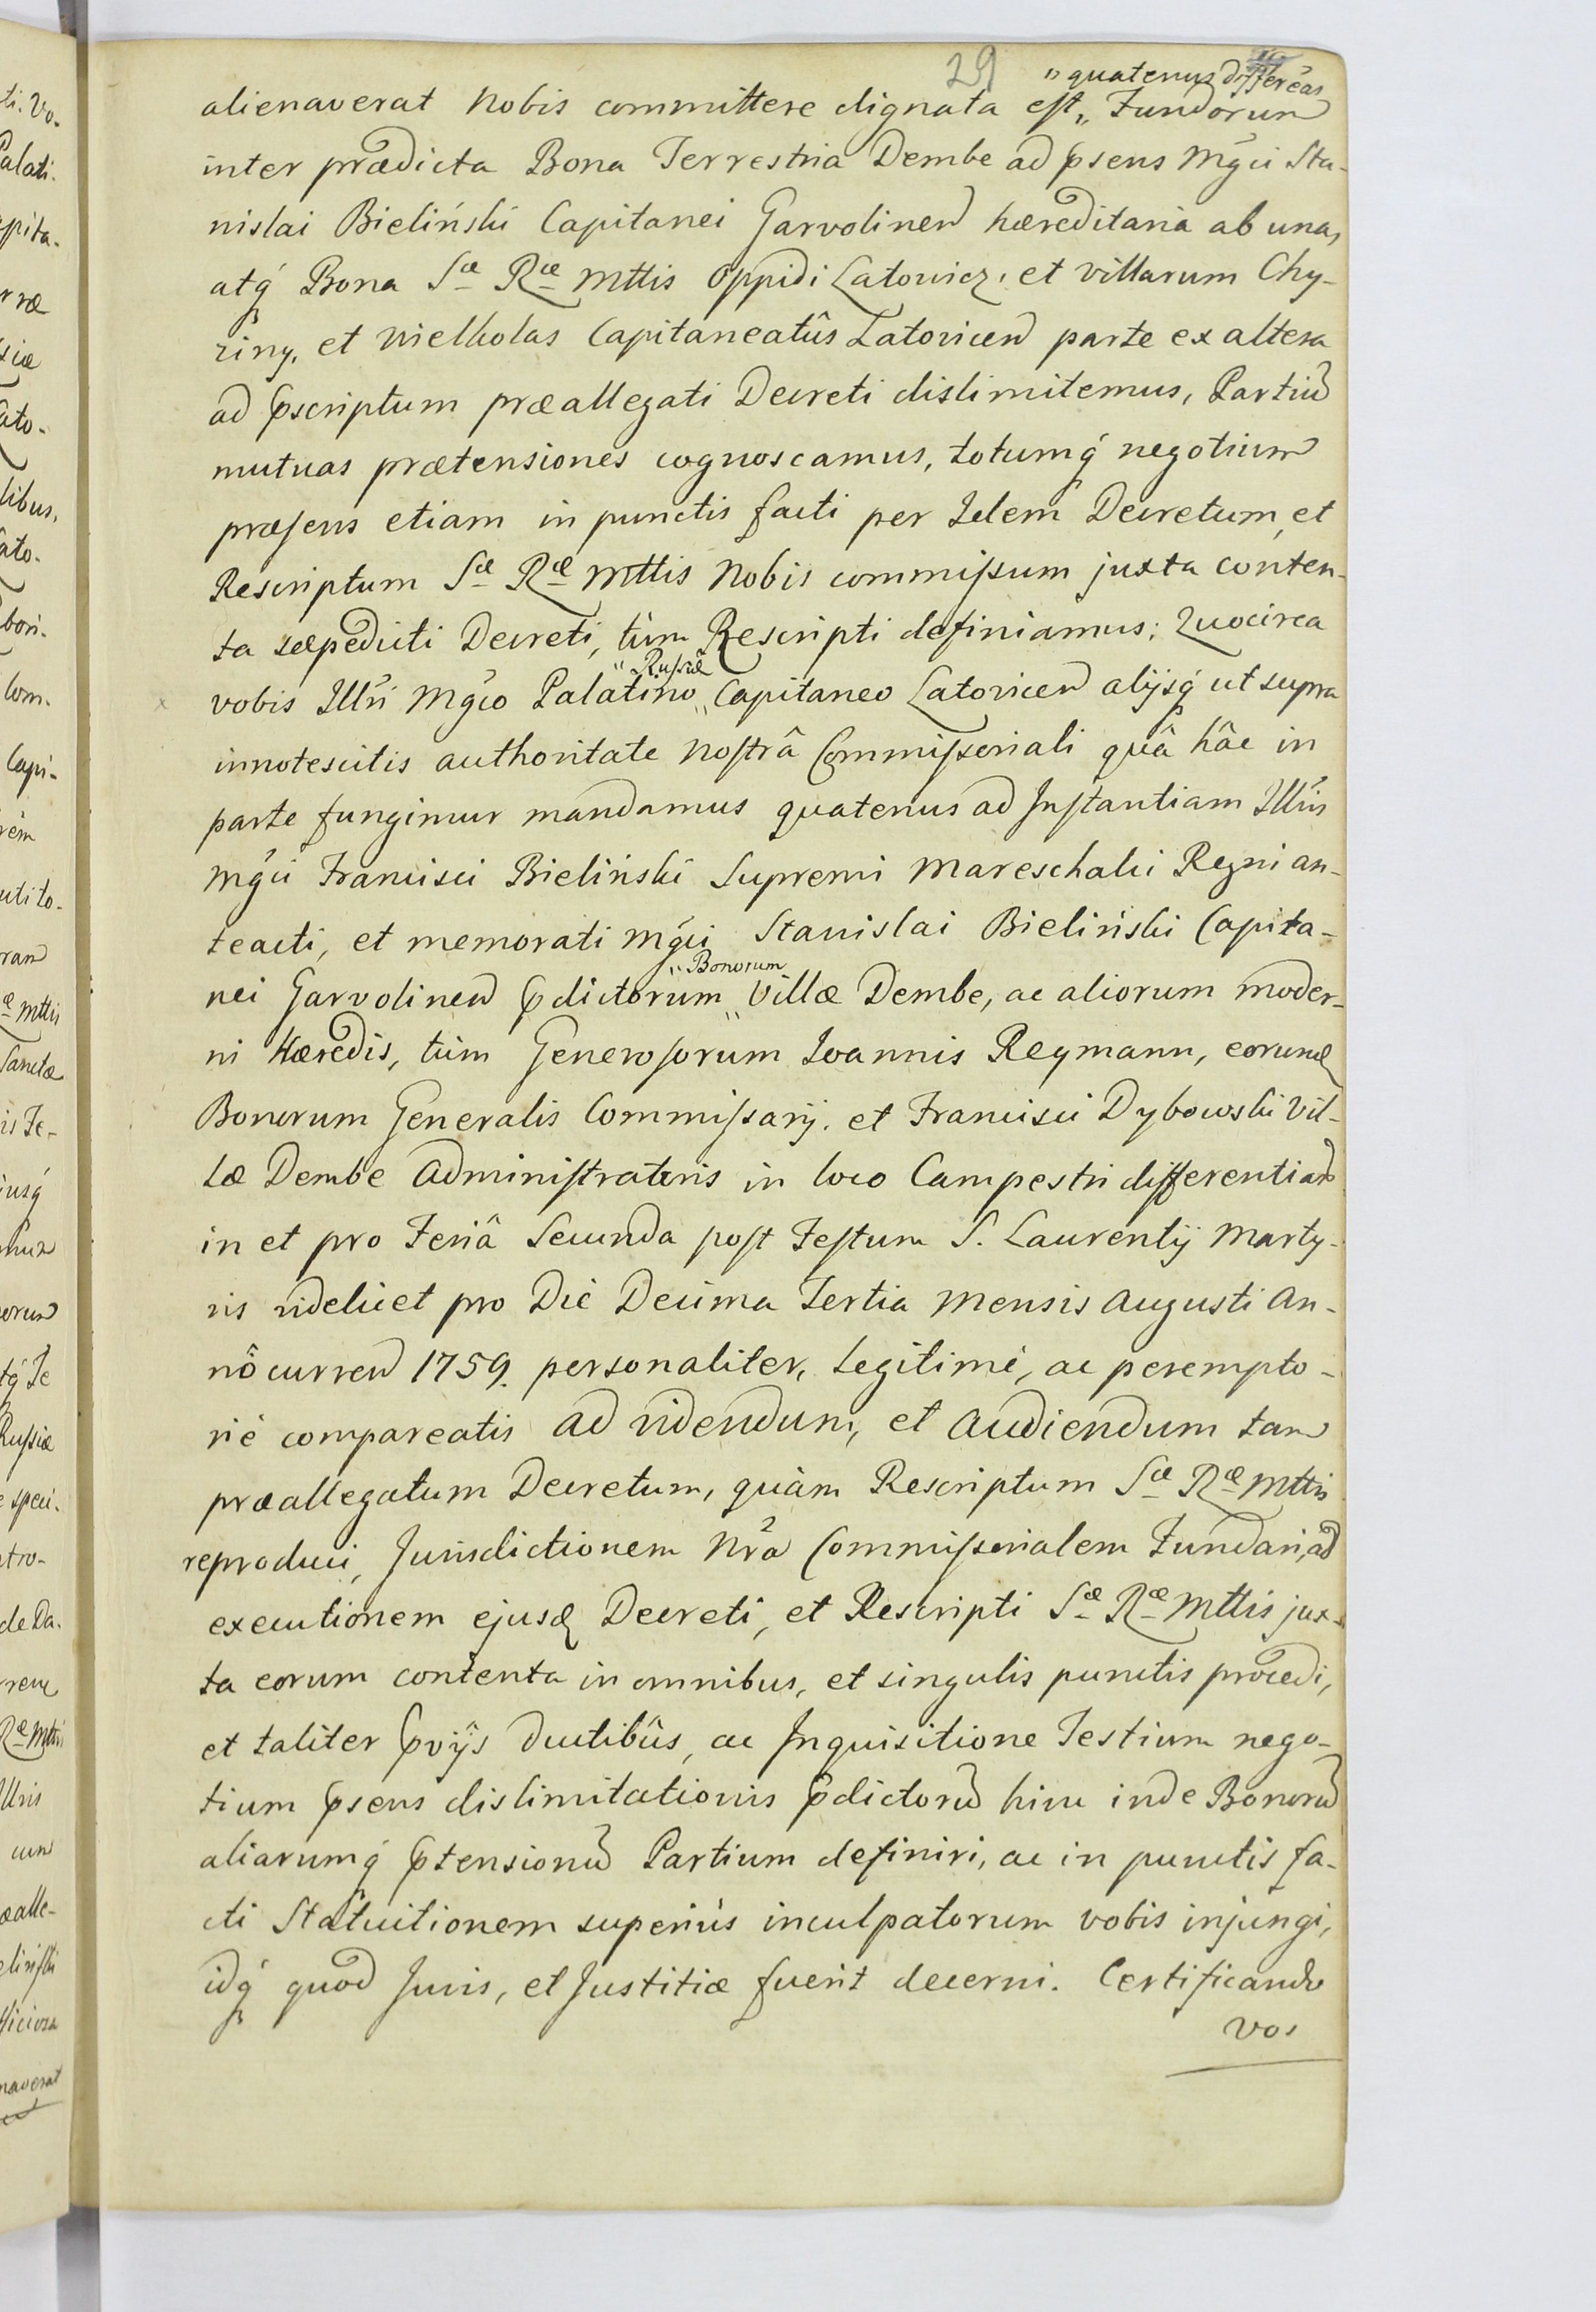 29
"quatenus differeas
alienaverat Nobis committere dignata est,, Fundorum
inter prædicta Bona Terrestria Dembe ad psens Mgci Sta-
nislai Bieliński Capitanei Garvolinen hæreditaria ab una,
atq́ Bona Sæ Ræ Mttis Oppidi Latowicz, et villarum Chy-
żiny, et Wielholas Capitaneatûs Latovicen parte ex altera
ad pscriptum præallegati Decreti dislimitemus, Partiū
mutuas prætensiones cognoscamus, totumq́ negotium
præsens etiam in punctis facti per Idem Decretum, et
Rescriptum Sæ Ræ Mttis Nobis commissum juxta conten-
ta sæpedicti Decreti, tùm Rescripti definiamus; Quocirca
"Russiæ
vobis Illri Mgco Palatino,, Capitaneo Latovicen alijsq́ ut supra
innotescitis authoritate Nostrâ Commissoriali quâ hâc in
parte fungimur mandamus quatenus ad Instantiam Illris
Mgci Francisci Bieliński Supremi Mareschalci Regni an-
teacti, et memorati Mgci Stanislai Bieliński Capita-
"Bonorum
nei Garvolinen pdictorum,, Villæ Dembe, ac aliorum moder-
ni Hæredis, tùm Generosorum Ioannis Reymann, eorund
Bonorum Generalis Commissarij, et Francisci Dybowski Vil-
læ Dembe Administratoris in loco Campestri differentiarū
in et pro Feriâ Secunda post Festum S. Laurentij Marty-
ris videlicet pro Die Decima Tertia Mensis Augusti An-
nô curren 1759. personaliter, Legitimè, ac perempto-
riè compareatis ad videndum, et Audiendum tam
præallegatum Decretum, quàm Rescriptum Sæ Ræ Mttis
reproduci, Jurisdictionem Nra Commissorialem Fundari, ad
executionem ejusd Decreti, et Rescripti Sæ Ræ Mttis jux-
ta eorum contenta in omnibus, et singulis punctis procedi,
et taliter pvijs Ductibûs, ac Inquisitione Testium nego-
tium psens dislimitationis pdictorū hinc inde Bonorū
aliarumq́ ptensionū Partium definiri, ac in punctis fa-
cti Statuitionem superiùs inculpatorum vobis injungi,
idq́ quod Juris, et Justitiæ fuerit decerni. Certificando
vos